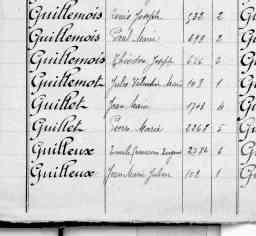 Guillemois Louis Joseph 532 2
Guillemois Paul Marie 698 2
Guillemois Théodore Joseph 626 2
Guillemot Jules Valentin Marie 103 1
Guillet Jean Marie 1708 4
Guillet Pierre Marie 2268 5
Guilleux 2376 6
Guilleux Jean Marie Julien 102 1